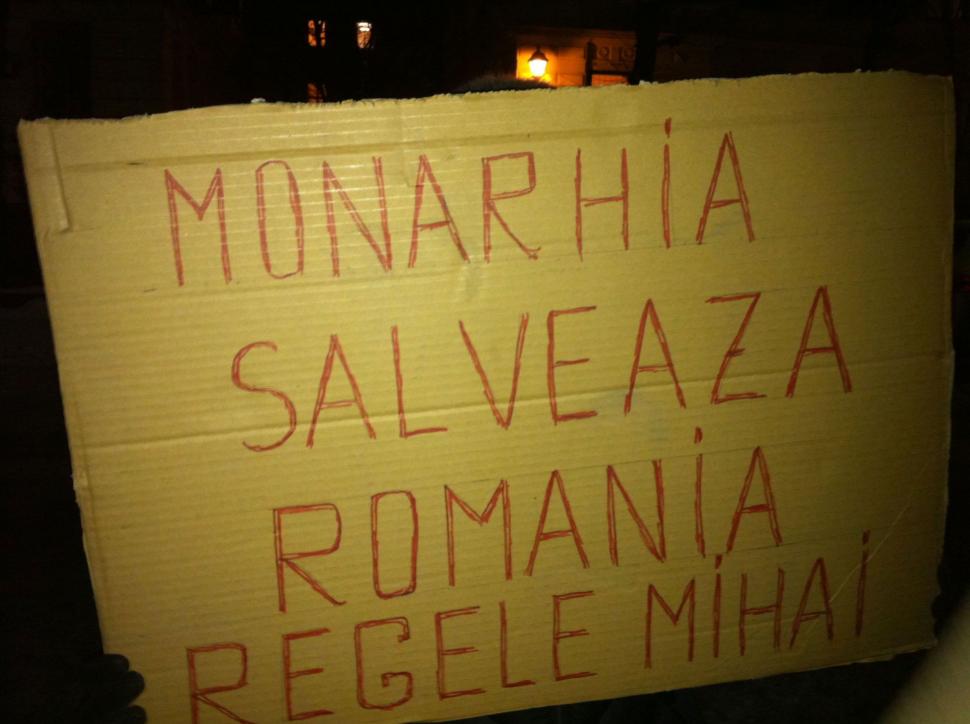 MONARHIA
SALVEAZA
ROMANIA
REGELE MIHAI